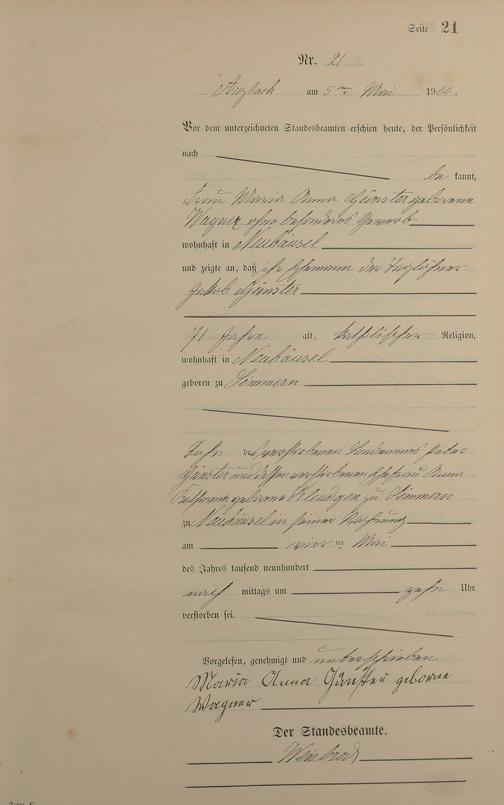 Seite 21
Nr. 21
Arzbach am 5ten Mai 1900.
Vor dem unterzeichneten Standesbeamten erschien heute, der Persönlichkeit
nach
be kannt,
Frau Maria Anna Günster geborene
Wagner ohne besonderes Gewerb
wohnhaft in Neuhäusel
und zeigte an, daß ihr Ehemann der Taglöhner
Jakob Günster
71 Jahre alt, katholischer Religion,
wohnhaft in Neuhäusel
geboren zu Simmern
Sohn des verstorbenen Peter
Günster und dessen verstorbenen Ehefrau Anna
geborene zu Simmern
zu Neuhäusel in seiner Wohnung
am vier ten Mai
des Jahres tausend neunhundert
nach mittags um zehn Uhr
verstorben sei.
Vorgelesen, genehmigt und unterschrieben
Maria Anna Günster geborne
Wagner
Der Standesbeamte.